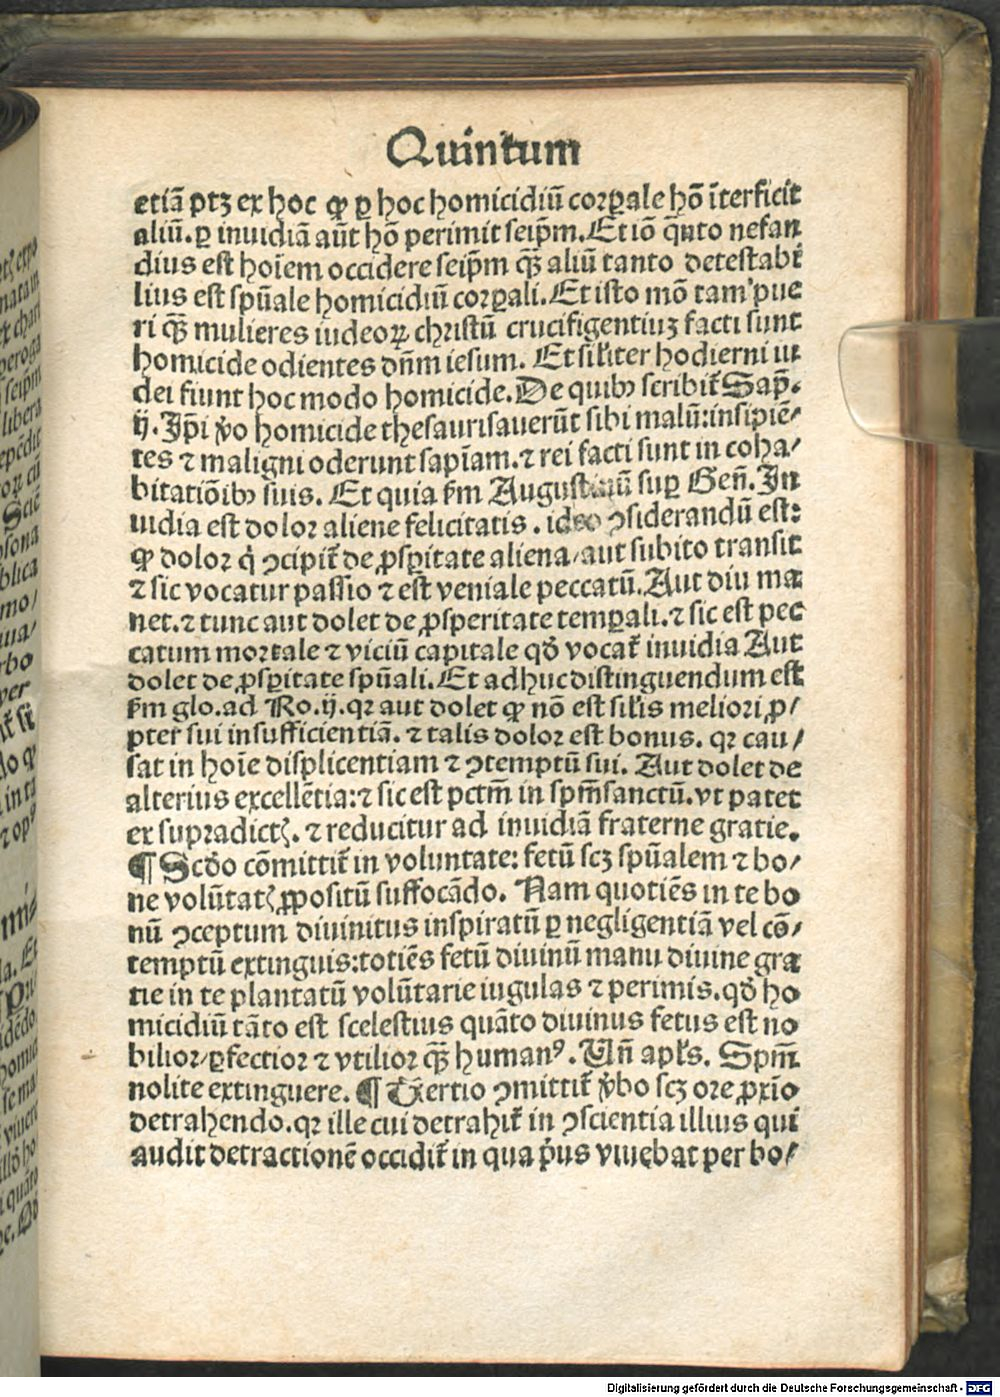 Quintum
etiã ptꝫ ex hoc ꝙ ꝑ hoc homicidiũ corꝑale hõ ĩterficit
aliũ. ꝑ inuidiã aũt hõ perimit seip̃m. Et iõ q̃nto nefan
dius est hoĩem occidere seip̃m qꝫ̃ aliũ tanto detestabi
lius est spũale homicidiũ corꝑali. Et isto mõ tam pue
ri qꝫ̃ mulieres iudeoꝝ christũ crucifigentiuꝫ facti sunt
homicide odientes dñm iesum. Et siĺiter hodierni iu
dei fiunt hoc modo homicide. De quibꝰ scribit̃ Sap̃.
ij. Ip̃i ṽo homicide thesaurisauerũt sibi malũ: insipiẽ⸗
tes ⁊ maligni oderunt sap̃iam. ⁊ rei facti sunt in coha⸗
bitatiõibꝰ suis. Et quia ẜm Augustinũ suꝑ Geñ. In
uidia est dolor aliene felicitatis. ideo ꝯsiderandũ est:
ꝙ dolor q̇ ꝯcipit̃ de ꝓsꝑitate aliena/ aut subito transit
⁊ sic vocatur passio ⁊ est veniale peccatũ. Aut diu ma
net. ⁊ tunc aut dolet de ꝓsperitate temꝑali. ⁊ sic est pec
catum mortale ⁊ viciũ capitale qð vocat̃ inuidia Aut
dolet de ꝓsꝑitate spũali. Et adhuc distinguendum est
ẜm glo. ad Ro. ij. qꝛ aut dolet ꝙ nõ est siĺis meliori ꝓ/
pter sui insufficientiã. ⁊ talis dolor est bonus. qꝛ cau/
sat in hoĩe displicentiam ⁊ ꝯtemptũ sui. Aut dolet de
alterius excellẽtia: ⁊ sic est pctm̃ in spm̃sanctũ. vt patet
ex supradictꝭ. ⁊ reducitur ad inuidiã fraterne gratie.
¶ Scðo cõmittit̃ in voluntate: fetũ scꝫ spũalem ⁊ bo/
ne volũtatꝭ ꝓpositũ suffocãdo. Nam quotiẽs in te bo
nũ ꝯceptum diuinitus inspiratũ ꝑ negligentiã vel cõ/
temptũ extinguis: totiẽs fetũ diuinũ manu diuine gra
tie in te plantatũ volũtarie iugulas ⁊ perimis. qð ho
micidiũ tãto est scelestius quãto diuinus fetus est no
bilior/ ꝑfectior ⁊ vtilior qꝫ̃ humanꝰ. Uñ apĺs. Spm̃
nolite extinguere. ¶ Tertio ꝯmittit̃ ṽbo scꝫ ore ꝓxĩo
detrahendo. qꝛ ille cui detrahit̃ in ꝯscientia illius qui
audit detractionẽ occidit̃ in qua pͥus viuebat per bo/
Digitalisierung gefördert durch die Deutsche Forschungsgemeinschaft - DFG